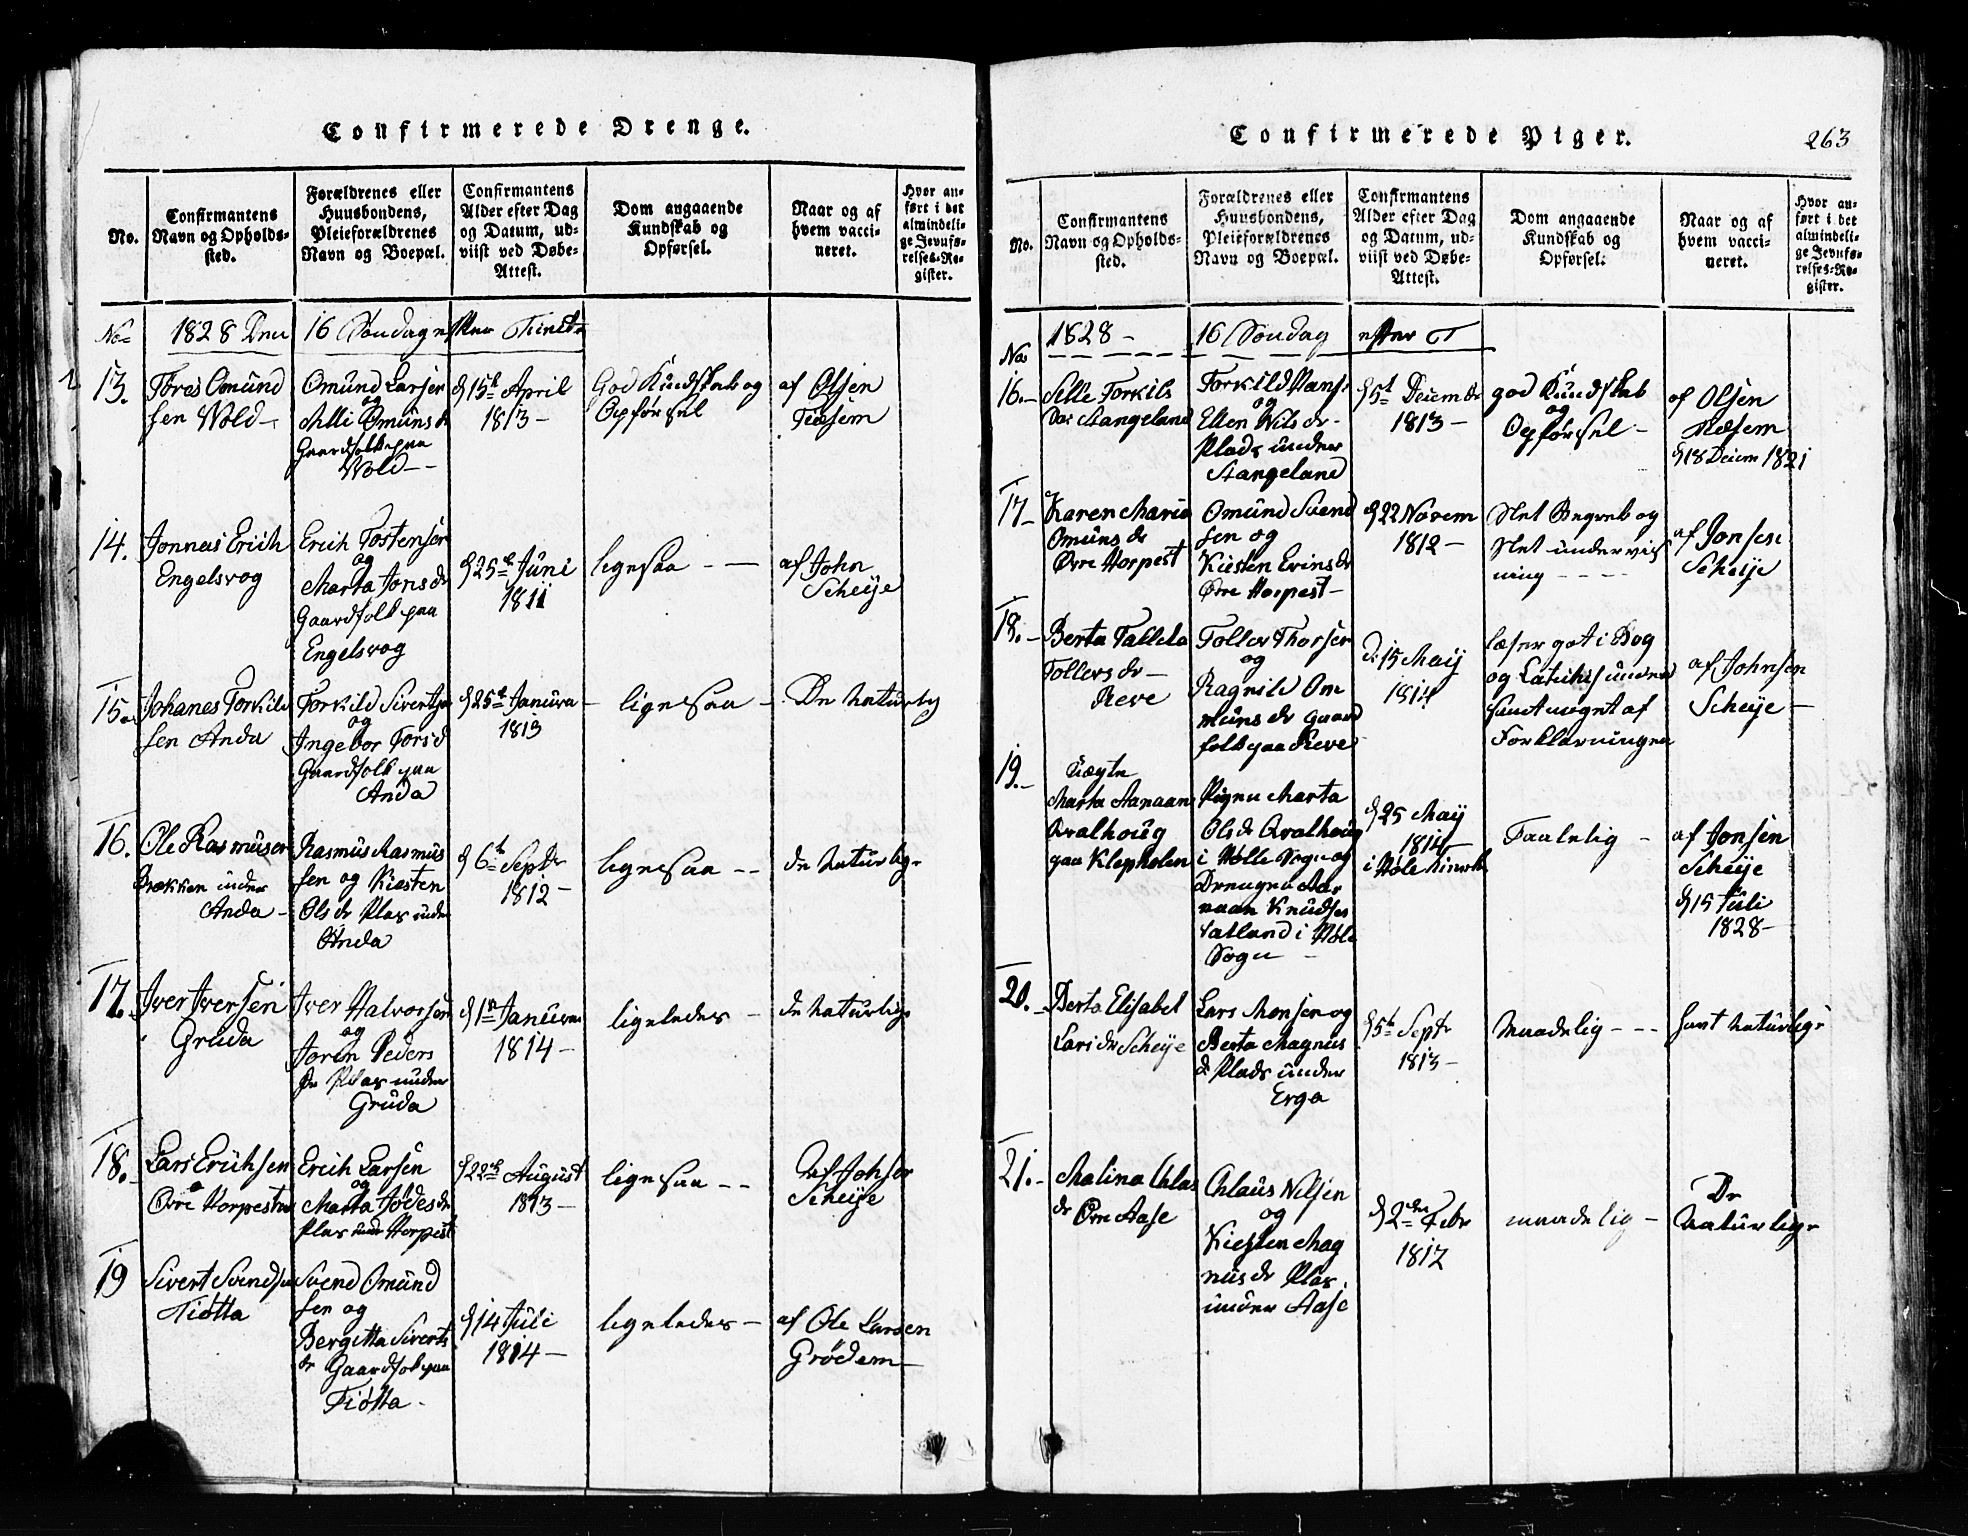 Confirmerede Drenge.
No.
Confirmantens
Navn og Opholds-
sted.
Forældrenes eller
Huusbondens,
Pleieforældrenes
Navn og Boepæl.
Confirmantens
Alder efter Dag
og Datum, ud-
viist ved Døbe-
Attest.
Dom angaaende
Kundskab og
Opførsel.
Naar og af
hvem vacci-
neret.
Hvor an-
ført i det
almindeli-
ge Jevnfø-
relses-Re-
gister.
No 1828 Den 16 Søndag efter Trinita
13.
Tøres Omund
sen Wold -
Omund Larsen
og
Alli Omuns dr
Gaardfolk paa
Wold -
d 15d April
1813 -
God Kundskab og
Opførsel
af Olsen
Tiæsem
14.
Jonnas Erich
Engelsvog
Erich Tostensen
og
Marta Jons dr
Gaardfolk paa
Engelsvog
d 25d Juni
1811
ligesaa - -
af John
Scheije
15.
Johanes Torkild
sen Anda
Torkild Sivertsen
og
Ingebor Tors d
Gaardfolk paa
Anda
d 25d Janúva
1813
ligesaa -
De naturlig
16.
Ole Rasmusen
Brækken under
Anda -
Rasmus Rasmus
sen og Kiesten
Ols dr Plas under
Anda
d 6t Septr
1812 -
ligesaa - -
de naturlige
17.
Iver Iversen
Gruda
Iver Halvorsen
og
Joren Peders
dr Plas under
Gruda
d 1n Januva
1814 -
ligeledes -
de naturlige
18.
Lars Erichsen
Øvre Horpestad
Erich Larsen
og
Marta Jødes dr
Plas under Horpest
d 22d August
1813 -
ligesaa - -
af Johsen
Scheije
19
Sivert Svendsen
Tiøtta
Svend Omund
sen og
Bergitta Siverts
dr Gaardfolk paa
Tiøtta -
d 14 Juli
1814 -
ligeledes -
af Ole Larsen
Grödem -
Confirmerede Piger.
263
No.
Confirmantens
Navn og Opholds-
sted.
Forældrenes eller
Huusbondens,
Pleieforældrenes
Navn og Boepæl.
Confirmantens
Alder efter Dag
og Datum, ud-
viist ved Døbe-
Attest.
Dom angaaende
Kundskab og
Opførsel:
Naar og af
hvem vacci-
neret.
Hvor an-
ført i det
almindeli-
ge Jevnfø-
relses-Re-
gister.
No 1828 - 16 Søndag efter T
16. -
Sille Torkils
dor Stangeland
Torkild Hans:
og
Ellen Nils dr -
Plads under
Stangeland
d 5t Decem dr
1813 -
god Kundskab
og
Opførsel -
af Olsen
Næsem
d 18 Decem 1821
17 -
Karen Maria
Omuns dr
Øvre Horpest
Omund Svend
sen og
Kiesten Evins dr
Øvre Horpest -
d 22 Novem
1812 -
Slet Begreb og
Slet undervis
ning - - - -
af Jonsen
Scheije
18. -
Berta Tallela
Tollers dr -
Reve
Toller Thorsen
og
Ragnild Om
muns dr Gaard
folk paa Reve
d 15 Maij
1814
læser got i Bog
og Catichis under
samt noget af
Forklarningen
af Johnsen
Scheije -
19. -
uægte
Marta Aanaans
Qvalhoug
paa Klepholen
Pigen Marta
Ols dr Qvalhoug
i Hølle Sogn og
Drengen Aa
naan Knudsen
Satland i Høle
Sogn -
d 25 Maij
1814
i Høle Kirke
Taalelig -
af Jonsen
Scheije
d 15 Juli
1828 -
20. -
Berta Elisabet
Lars dr Scheije
Lars Monsen og
Berta Magnus
d Plads under
Erga
d 5t Septr
1813 -
Maadelig - - -
havt naturlige
21. -
Malina Clas
dr Øvre Aase
Claus Nilsen
og
Kiesten Mag
nus dr Plas
under Aase
d 2den Febr
1812
maadelig -
De
Naturlige